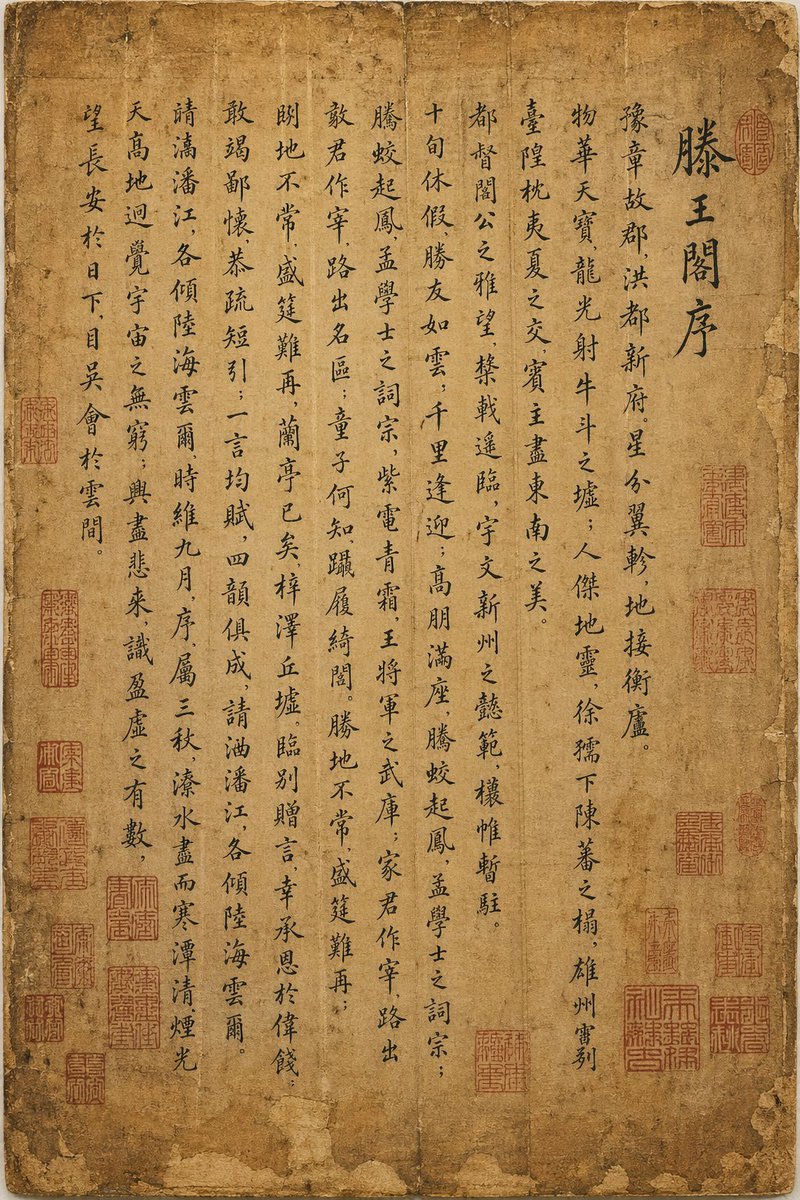 滕王閣序
豫章故郡，洪都新府。星分翼軫，地接衡廬。
物華天寶，龍光射牛斗之墟；人傑地靈，徐孺下陳蕃之榻，雄州
臺隍枕夷夏之交，賓主盡東南之美。
都督閣公之雅望，棨戟遙臨，宇文新州之懿範，襜帷暫駐。
十旬休假，勝友如雲；千里逢迎；高朋滿座，騰蛟起鳳，孟學士之詞宗；
騰蛟起鳳，孟學士之詞宗，紫電青霜，王將軍之武庫；家君作宰，路出
敢君作宰，路出名區；童子何知，躡履綺閣。勝地不常，盛筵難再；
地不常，盛筵難再，蘭亭已矣，梓澤丘墟。臨別贈言，幸承恩於偉餞；
敢竭鄙懷，恭疏短引；一言均賦，四韻俱成，請洒潘江，各傾陸海雲爾。
潘江，各傾陸海雲爾，時維九月，序，屬三秋，潦水盡而寒潭清，煙光
天高地迥覺宇宙之無窮；興盡悲來，識盈虛之有數，
望長安於日下，目吳會於雲間。